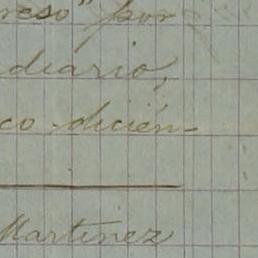 reso" por
diario,
co dicien-
Martinez